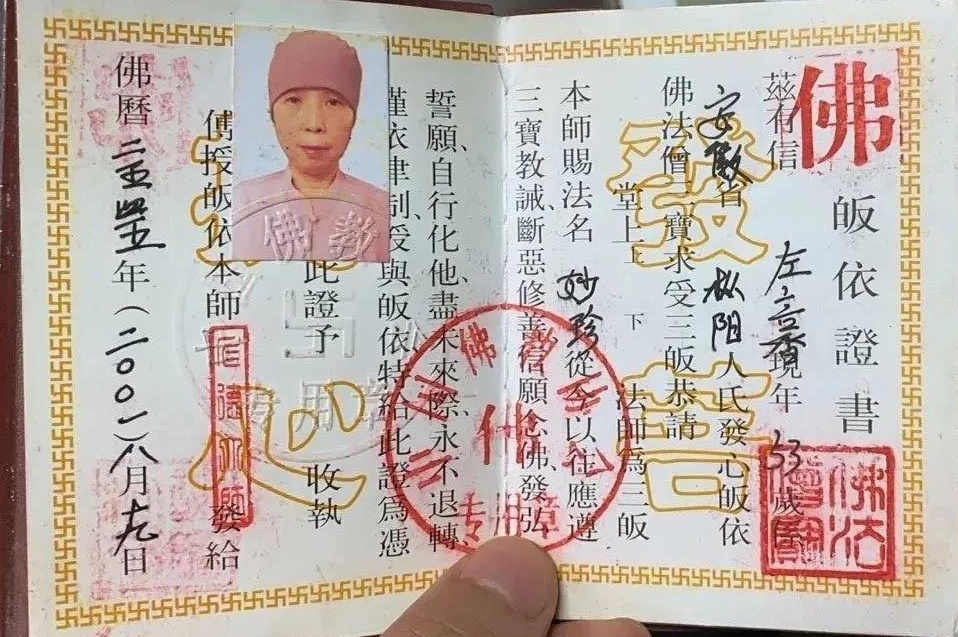 佛
皈依證書
茲有信 左言香 現年 53 歲係
安徽省 枞阳 人氏發心皈依
佛法僧三寶求受三皈恭請
堂上上 下 法師為三皈
本師賜法名 妙珍 從今以往應遵
三寶教誡斷惡修善信願念佛、發弘
誓願、自行化他、盡未來際、永不退轉
謹依律制、授與皈依特給此證為憑
此證予 收執
傳授皈依本師 發給
佛曆 二五四五年(二〇〇一)八月十九日
發菩
心
佛法僧寶
佛教
专用章
专用章